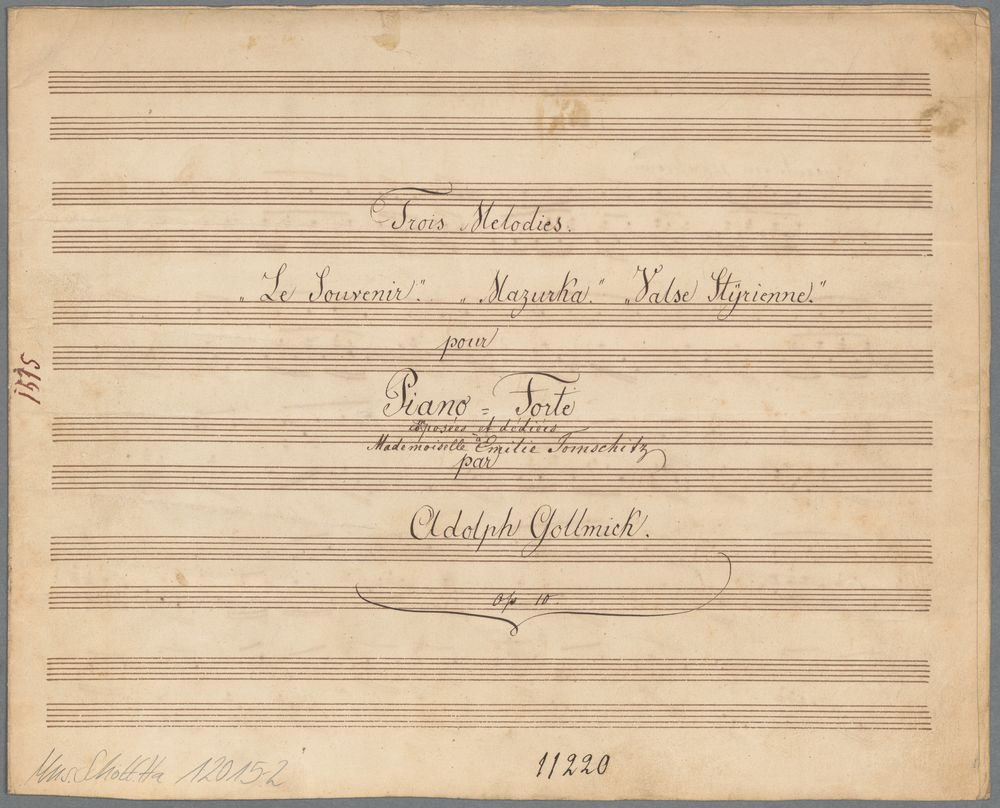 Trois Melodies.
„Le Souvenir." „Mazurka." „Valse Stÿrienne."
pour
Piano = Forte
composées et dédiées
à
Mademoiselle Emilie Tomschitz
par
Adolph Gollmick.
Op 10.
1515
Mus. Schott. Ha 12015-2
11220